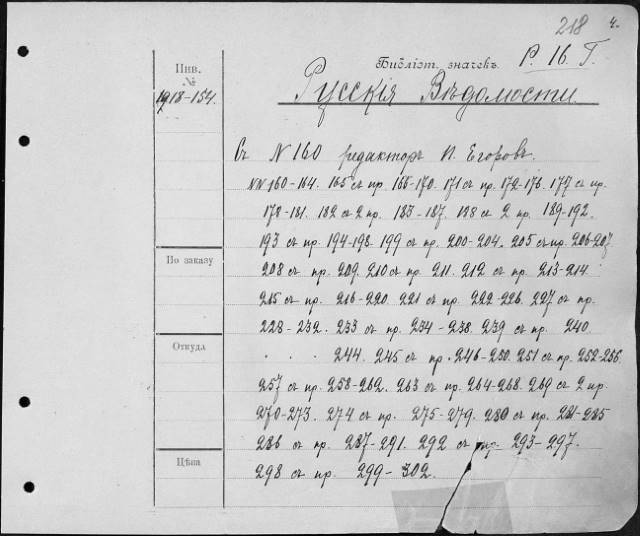 218 4.
Библіот. значекъ Р. 16. Г.
Инв.
№
1918-154.
Русскія Вѣдомости.
Съ № 160 редакторъ И. Егоровъ.
№№ 160-164. 165 съ пр. 166-170. 171 съ пр. 172-176. 177 съ пр.
178-181. 182 съ 2 пр. 183-187. 188 съ 2 пр. 189-192.
193 съ пр. 194-198. 199 съ пр. 200-204. 205 съ пр. 206-207
По заказу
208 съ пр. 209. 210 съ пр. 211. 212 съ пр. 213-214.
215 съ пр. 216-220. 221 съ пр. 222-226. 227 съ пр.
228-232. 233 съ пр. 234-238. 239 съ пр. 240.
Откуда
. . . 244. 245 съ пр. 246-250. 251 съ пр. 252-256.
257 съ пр. 258-262. 263 съ пр. 264-268. 269 съ 2 пр.
270-273. 274 съ пр. 275-279. 280 съ пр. 281-285
286 съ пр. 287-291. 292 съ пр. 293-297.
Цѣна
298 съ пр. 299-302.